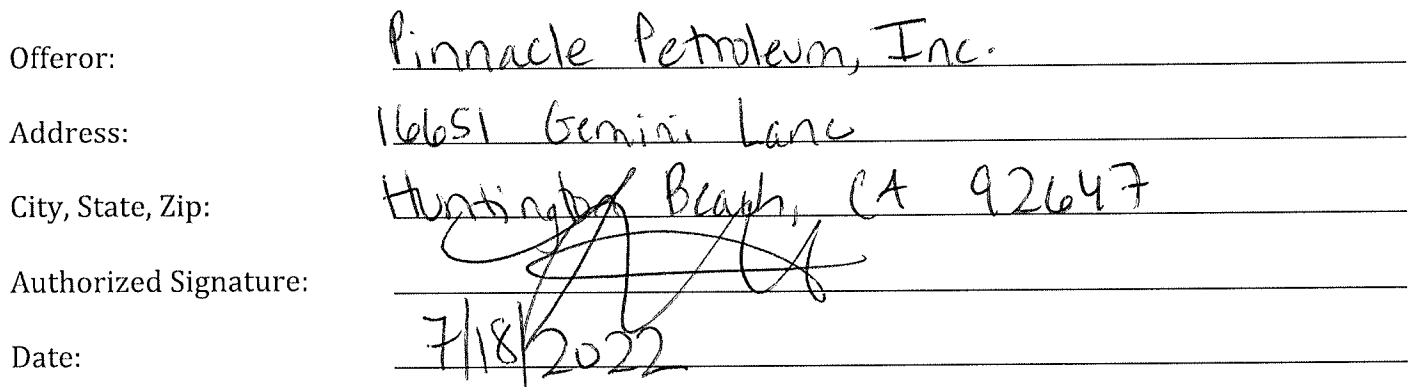 Offeror: Pinnacle Petroleum, Inc.
Address: 16651 Gemini Lane
City, State, Zip: Huntington Beach, CA 92647
Authorized Signature:
Date: 7/18/2022